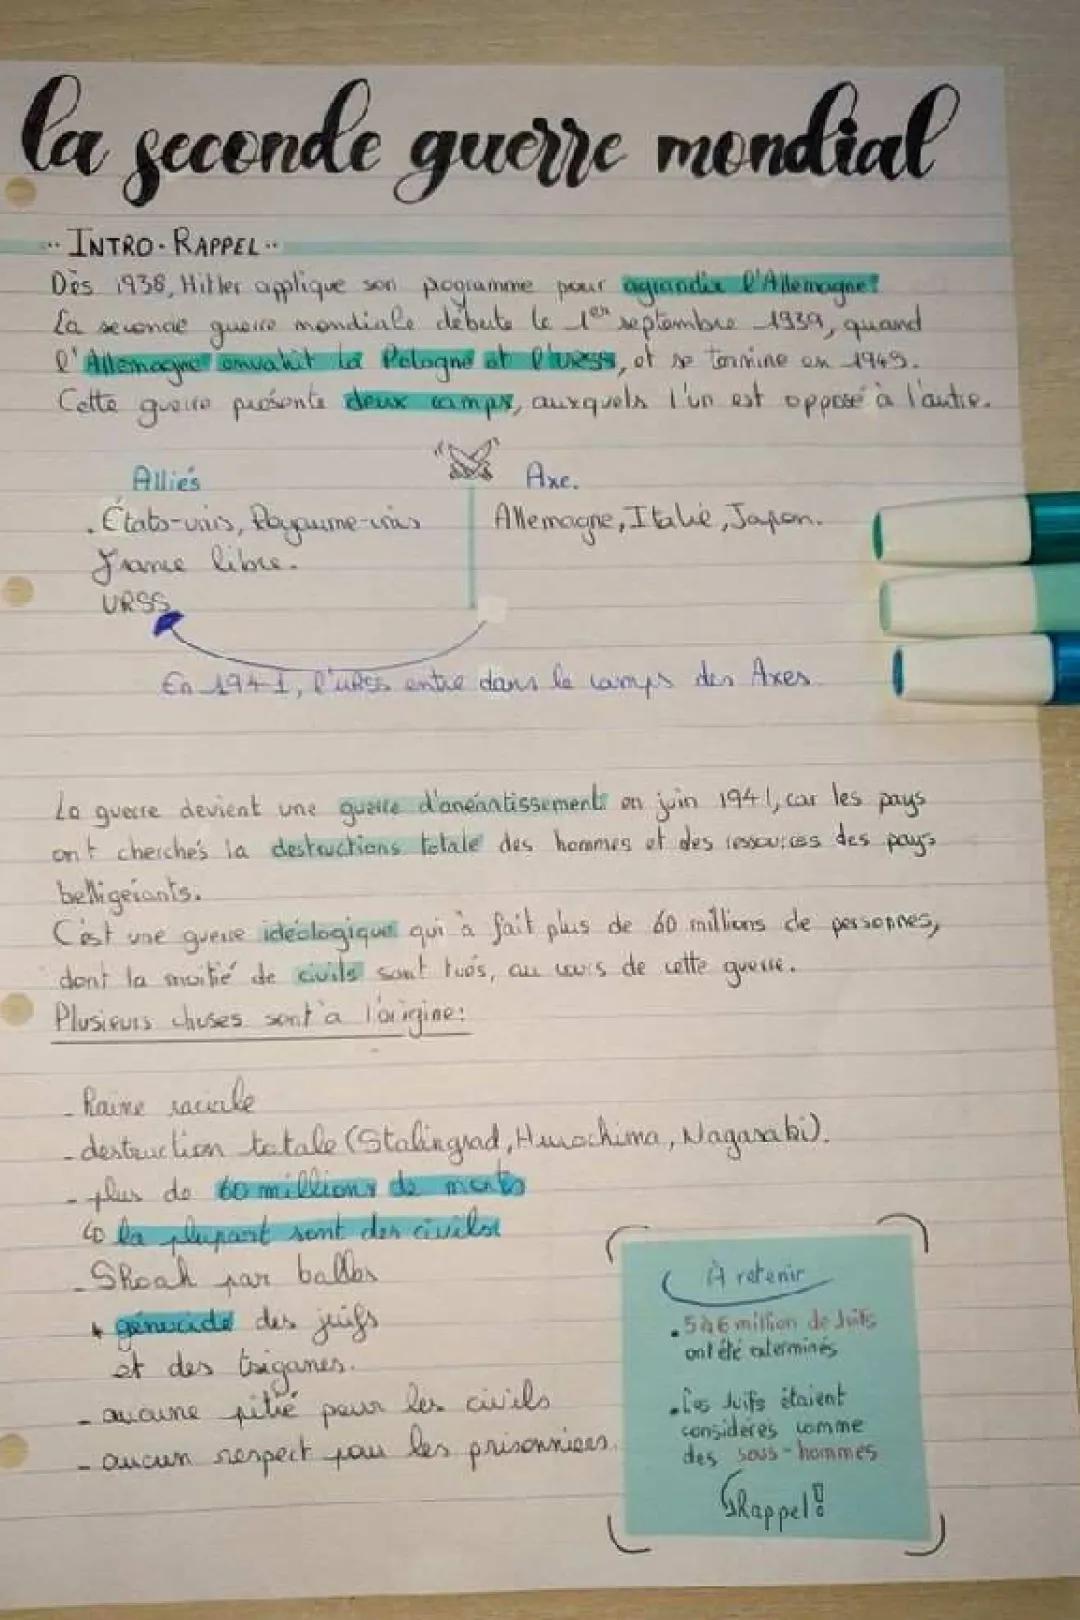 la seconde guerre mondial
INTRO. RAPPEL
Dès 1938, Hitler applique son pogramme pour agrandir l'Allemagne!
La seconde guerre mondiale débute le 1er septembre 1939, quand
l'Allemagne envahit la Pologne et l'URSS, et se termine en 1945.
Cette guerre présente deux camps, auxquels l'un est opposé à l'autre.
Alliés
Axe.
. États-unis, Royaume-unis
Allemagne, Italie, Japon.
France libre.
URSS
En 1941, l'URSS entre dans le camps des Axes.
La guerre devient une guerre d'anéantissement en juin 1941, car les pays
ont cherchés la destructions totale des hommes et des ressources des pays
belligérants.
C'est une guerre idéologique qui à fait plus de 60 millions de personnes,
dont la moitié de civils sont tués, au cours de cette guerre.
Plusieurs choses sont à l'origine:
- haine raciale
- destruction totale (Stalingrad, Hirochima, Nagasaki).
- plus de 60 millions de morts
↳ la plupart sont des civils
- Shoah par balles
↳ génocide des juifs
et des tsiganes.
- aucune pitié pour les civils
- aucun respect pou les prisonniers.
À retenir
. 5 à 6 million de Juifs
ont été exterminés
. Les Juifs étaient
considérés comme
des sous-hommes
↳ Rappel!